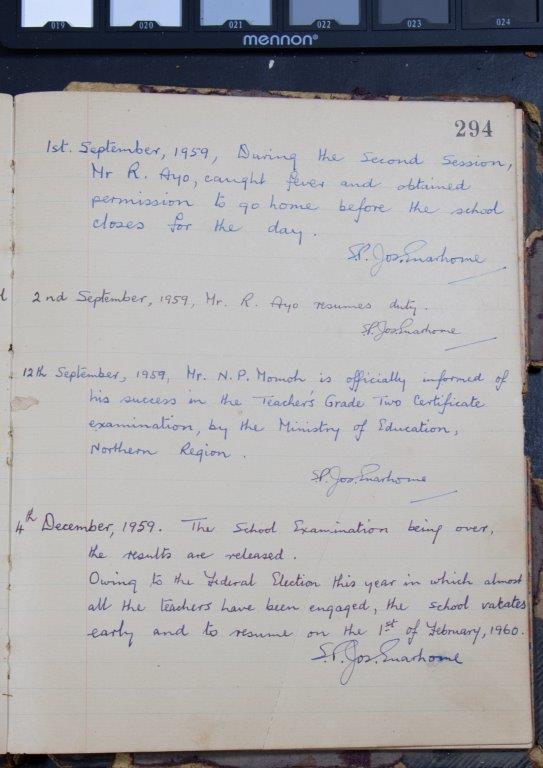 019 020 021 022 023 024
mennon®
294
1st. September, 1959, During the Second Session,
Mr R. Ayo, caught fever and obtained
permission to go home before the school
closes for the day.
S.P. Jos. Enarhome
2nd September, 1959, Mr. R. Ayo resumes duty.
S.P. Jos. Enarhome
12th September, 1959, Mr. N.P. Momoh is officially informed of
his success in the Teacher's Grade Two Certificate
examination, by the Ministry of Education,
Northern Region.
S.P. Jos. Enarhome
4th December, 1959. The School Examination being over,
the results are released.
Owing to the Federal Election this year in which almost
all the teachers have been engaged, the school vakates
early and to resume on the 1st of February, 1960.
S.P. Jos. Enarhome